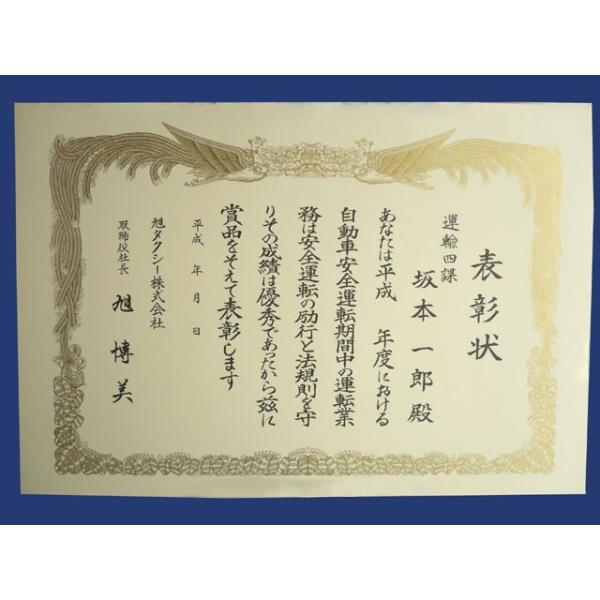 表彰状
運輸四課
坂本一郎殿
あなたは平成 年度における
自動車安全運転期間中の運転業
務は安全運転の励行と法規則を守
りその成績は優秀であったから茲に
賞品をそえて表彰します
平成 年 月 日
旭タクシー株式会社
取締役社長 旭博美